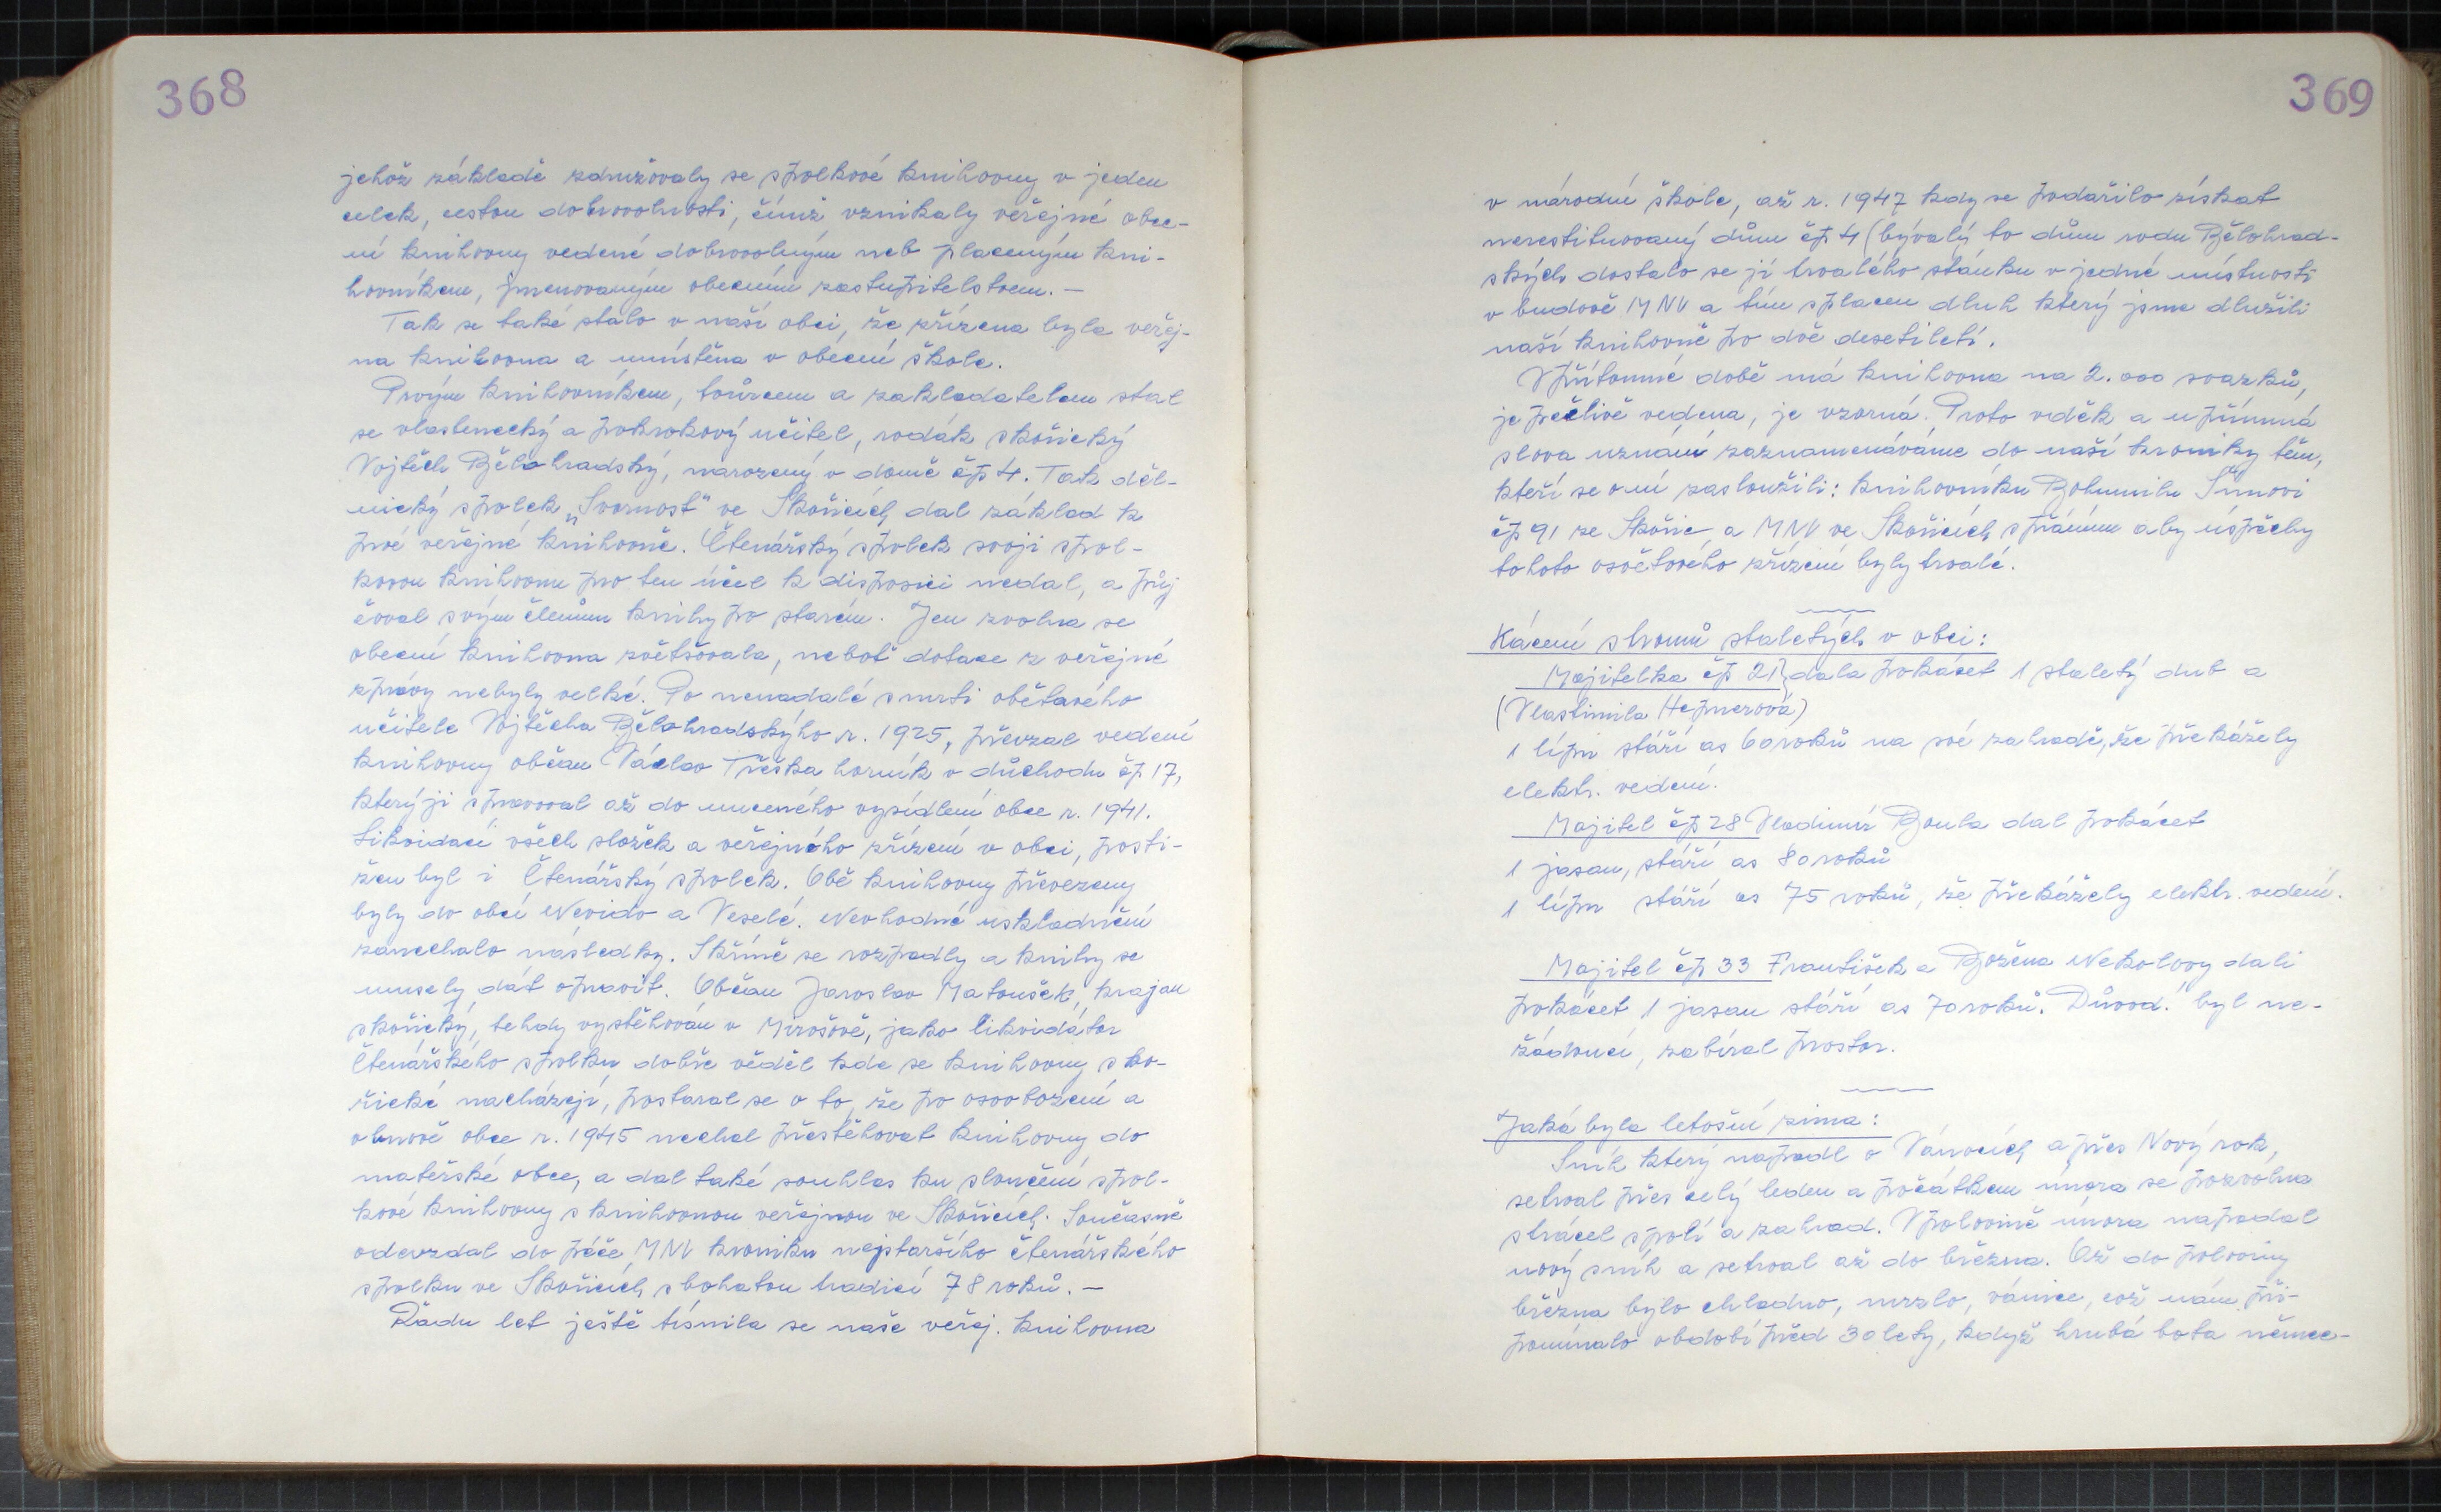 368
jehož základě združovaly se spolkové knihovny v jeden
celek, cestou dobrovolnosti, čímž vznikaly veřejné obec-
ní knihovny vedené dobrovolným neb placeným kni-
hovníkem, jmenovaným obecním zastupitelstvem. –
Tak se také stalo v naší obci, že zřízena byla veřej-
na knihovna a umístěna v obecní škole.
Prvým knihovníkem, tvůrcem a zakladatelem stal
se vlastenecký a pokrokový učitel, rodák skořický
Vojtěch Bělohradský, narozený v domě čp 4. Tak děl-
nický spolek „Svornost" ve Skořicích dal základ k
prvé veřejné knihovně. Čtenářský spolek svoji spol-
kovou knihovnu pro ten účel k disposici nedal, a půj
čoval svým členům knihy po starém. Jen zvolna se
obecní knihovna zvětšovala, neboť dotace z veřejné
správy nebyly velké. Po nenadálé smrti obětavého
učitele Vojtěcha Bělohradskýho r. 1925, převzal vedení
knihovny občan Václav Tříska horník v důchodu čp 17,
který ji spravoval až do nuceného vysídlení obce r. 1941.
Likvidací všech složek a veřejného zřízení v obci, posti-
žen byl i Čtenářský spolek. Obě knihovny převezeny
byly do obcí Nevido a Veselé. Nevhodné uskladnění
zanechalo následky. Skříně se rozpadly a knihy se
musely dát opravit. Občan Jaroslav Matoušek, krajan
skořický, tehdy vystěhován v Mirošově, jako likvidátor
Čtenářského spolku dobře věděl kde se knihovny sko-
řické nacházejí, postaral se o to, že po osvobození a
obnově obce r. 1945 nechal přestěhovat knihovny do
mateřské obce, a dal také souhlas ku sloučení spol-
kové knihovny s knihovnou veřejnou ve Skořicích. Současně
odevzdal do péče MNV kroniku nejstaršího čtenářského
spolku ve Skořicích s bohatou tradicí 78 roků. –
Řadu let ještě tísnila se naše veřej. knihovna
369
v národní škole, až r. 1947 kdy se podařilo získat
nerestituovaný dům čp 4 (bývalý to dům rodu Bělohrad-
ských dostalo se jí trvalého stánku v jedné místnosti
v budově MNV a tím splacen dluh který jsme dlužili
naší knihovně po dvě desetiletí.
V přítomné době má knihovna na 2.000 svazků,
je pečlivě vedena, je vzorná. Proto vděk a upřímná
slova uznání zaznamenáváme do naší kroniky těm,
kteří se o ní zasloužili: knihovníku Bohumilu Šimovi
čp 91 ze Skořic, a MNV ve Skořicích s přáním aby úspěchy
tohoto osvětového zřízení byly trvalé.
Kácení stromů staletých v obci:
Majitelka čp 21, dala pokácet 1 staletý dub a
(Vlastimila Hepnerová)
1 lípu stáří as 60 roků na své zahradě, že překážely
elektr. vedení.
Majitel čp 28 Vladimír Boula dal pokácet
1 jasan, stáří as 80 roků
1 lípu stáří as 75 roků, že překážely elektr. vedení.
Majitel čp 33 František a Božena Nekolovy dali
pokácet 1 jasan stáří as 70 roků. Důvod: byl ne-
žádoucí, zabíral prostor.
Jaká byla letošní zima:
Sníh který napadl o Vánocích a přes Nový rok,
setrval přes celý leden a počátkem února se pozvolna
ztrácel s polí a zahrad. V polovině února napadal
nový sníh a setrval až do března. Až do poloviny
března bylo chladno, mrzlo, vánice, což nám při-
pomínalo období před 30 lety, když hrubá bota němec-